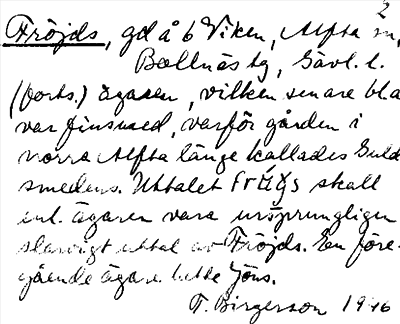 2
Fröjds, gd å 6 Viken, Alfta sn,
Bollnäs tg, Gävl. l.
(forts.) ägaren, vilken senare bl a
var finsmed, varför gården i
norra Alfta länge kallades Guld
smedens. Uttalet skall
enl. ägaren vara ursprungligen
slarvigt uttal av Fröjds. En före-
gående ägare hette Jöns.
T. Birgerson 1946